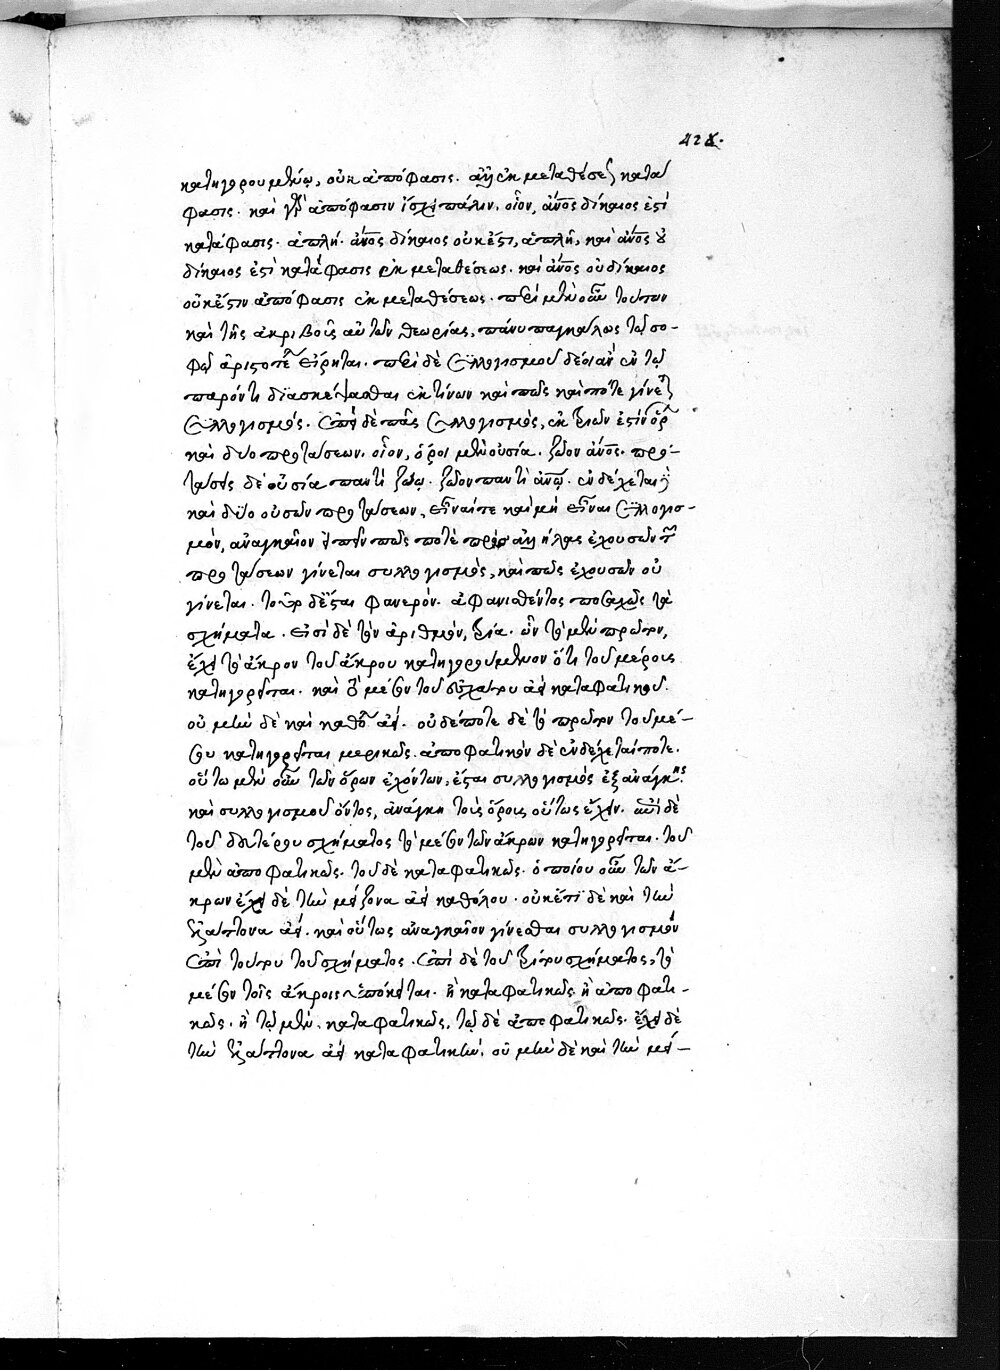 428.
κατηγορουμένῳ, οὐκ ἀπόφασις. ἀλλ' ἐκ μεταθέσεως κατά
φασις. καὶ γὰρ ἀπόφασιν ἴσχει πάλιν. οἷον, ἄνος δίκαιος ἐστὶ
κατάφασις. ἁπλῆ. ἄνος δίκαιος οὐκ ἔστι, ἁπλῆ, καὶ ἄνος οὐ
δίκαιος ἐστὶ κατάφασις ἐκ μεταθέσεως. καὶ ἄνος οὐ δίκαιος
οὐκ ἔστιν ἀπόφασις ἐκ μεταθέσεως. περὶ μὲν οὖν τούτων
καὶ τῆς ἀκριβοῦς αὐτῶν θεωρίας, πάνυ παγκάλως τῷ σο-
φῷ ἀριστοτέλει εἴρηται. περὶ δὲ συλλογισμοῦ δέον ἂν ἐν τῷ
παρόντι διασκέψασθαι ἐκ τίνων καὶ πῶς καὶ πότε γίνεται
συλλογισμός. ἐπεὶ δὲ πᾶς συλλογισμὸς, ἐκ τριῶν ἐστὶν ὅρων
καὶ δύο προτάσεων. οἷον, ὅροι μὲν οὐσία. ζῶον ἄνος. προ-
τάσεις δὲ οὐσία παντὶ ζώῳ. ζῶον παντὶ ἀνῳ. ἐνδέχεται δὲ
καὶ δύο οὐσῶν προτάσεων, εἶναί τε καὶ μὴ εἶναι συλλογισ-
μὸν, ἀναγκαῖον εἰπεῖν πῶς ποτὲ πρὸς ἀλλήλας ἐχουσῶν τῶν
προτάσεων γίνεται συλλογισμὸς, καὶ πῶς ἐχουσῶν οὐ
γίνεται. τοῦτο δὲ ἔσται φανερόν. ἀφανισθέντος τὰ
σχήματα. εἰσὶ δὲ τὸν ἀριθμὸν, τρία. ὧν τὸ μὲν πρῶτον,
ἔχει τὸ ἄκρον τοῦ ἄκρου κατηγορούμενον ὅτι τοῦ μέσου
κατηγορεῖται. καὶ τὸ μέσον τοῦ ἐσχάτου ἀεὶ καταφατικοῦ.
οὐ μὲν δὲ καὶ καθόλου ἀεί. οὐδέποτε δὲ τὸ πρῶτον τοῦ μέ-
σου κατηγορεῖται μερικῶς. ἀποφατικὸν δὲ ἐνδέχεταί ποτε.
οὕτω μὲν οὖν τῶν ὅρων ἐχόντων, ἔσται συλλογισμὸς ἐξ ἀνάγκης.
καὶ συλλογισμοῦ ὄντος, ἀνάγκη τοὺς ὅρους οὕτως ἔχειν. ἐπὶ δὲ
τοῦ δευτέρου σχήματος τὸ μέσον τῶν ἄκρων κατηγορεῖται. τοῦ
μὲν ἀποφατικῶς. τοῦ δὲ καταφατικῶς. ὁποίου οὖν τῶν ἄ-
κρων ἔχει δὲ τὴν μείζονα ἀεὶ καθόλου. οὐκέτι δὲ καὶ τὴν
ἐλάττονα ἀεί. καὶ οὕτως ἀναγκαῖον γίνεσθαι συλλογισμὸν
ἐπὶ τούτου τοῦ σχήματος. ἐπὶ δὲ τοῦ τρίτου σχήματος, τὸ
μέσον τοῖς ἄκροις ὑπόκειται. ἢ καταφατικῶς ἢ ἀποφατι-
κῶς. ἢ τῷ μὲν. καταφατικῶς, τῷ δὲ ἀποφατικῶς. ἔχει δὲ
τὴν ἐλάττονα ἀεὶ καταφατικήν. οὐ μὲν δὲ καὶ τὴν μεί-